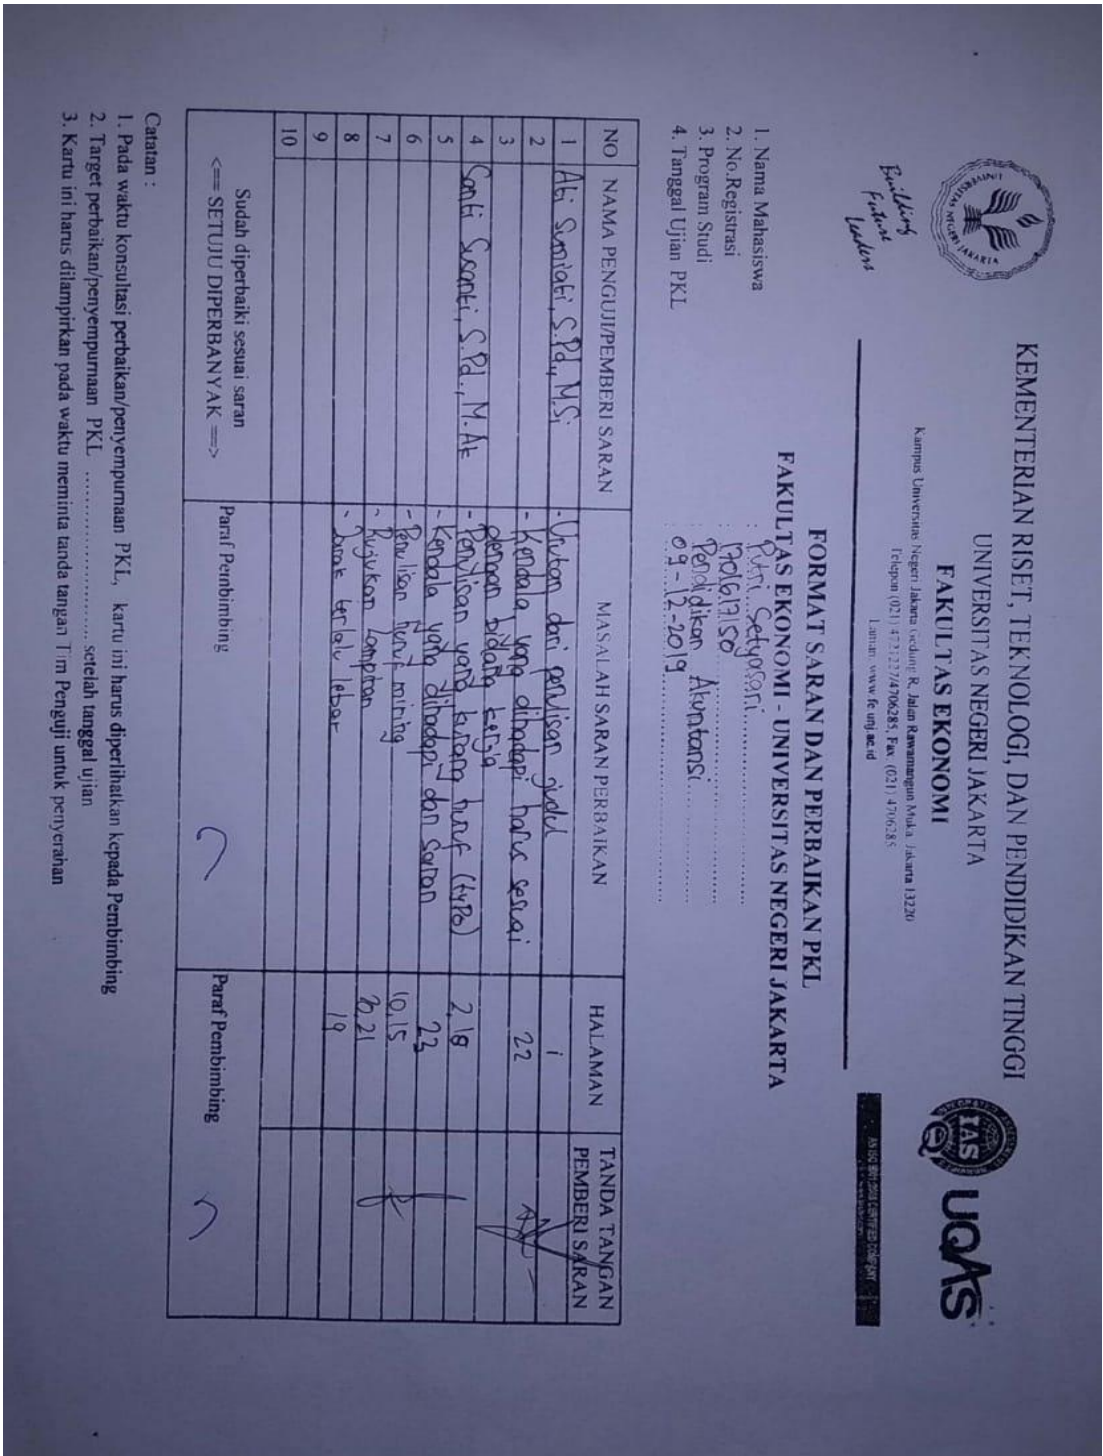 KEMENTERIAN RISET, TEKNOLOGI, DAN PENDIDIKAN TINGGI
UNIVERSITAS NEGERI JAKARTA
FAKULTAS EKONOMI
Kampus Universitas Negeri Jakarta Gedung R, Jalan Rawamangun Muka, Jakarta 13220
Telepon (021) 4721227/4706285, Fax: (021) 4706285
Laman: www.fe.unj.ac.id
Building
Future
Leaders
IAS
UQAS
AN ISO 9001:2008 CERTIFIED COMPANY
FORMAT SARAN DAN PERBAIKAN PKL
FAKULTAS EKONOMI - UNIVERSITAS NEGERI JAKARTA
1. Nama Mahasiswa : Putri Setyasari
2. No.Registrasi : 1701617150
3. Program Studi : Pendidikan Akuntansi
4. Tanggal Ujian PKL : 09-12-2019
NO NAMA PENGUJI/PEMBERI SARAN MASALAH SARAN PERBAIKAN HALAMAN TANDA TANGAN PEMBERI SARAN
1 Ati Sumiati, S.Pd., M.Si - Urutan dari penulisan judul i
2 - Kendala yang dihadapi harus sesuai 22
3 dengan bidang kerja
4 Santi Susanti, S.Pd., M.Ak - Penulisan yang kurang huruf (typo) 2,18
5 - Kendala yang dihadapi dan Saran 23
6 - Penulisan huruf miring 10,15
7 - Rujukan Lampiran 20,21
8 - Jarak terlalu lebar 19
9
10
Sudah diperbaiki sesuai saran
<== SETUJU DIPERBANYAK ==>
Paraf Pembimbing
Paraf Pembimbing
Catatan :
1. Pada waktu konsultasi perbaikan/penyempurnaan PKL, kartu ini harus diperlihatkan kepada Pembimbing
2. Target perbaikan/penyempurnaan PKL ........................ setelah tanggal ujian
3. Kartu ini harus dilampirkan pada waktu meminta tanda tangan Tim Penguji untuk penyerahan